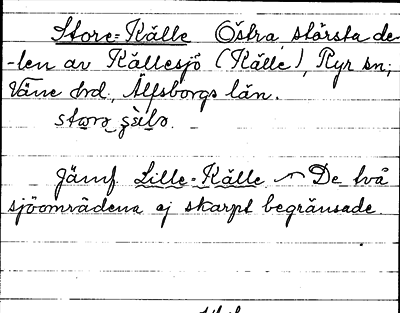 Store-Källe Östra, största de-
-len av Källesjö (Källe), Ryr sn,
Väne hrd, Älfsborgs län.
Jämf. Lille-Källe – De två
sjöområdena ej skarpt begränsade.